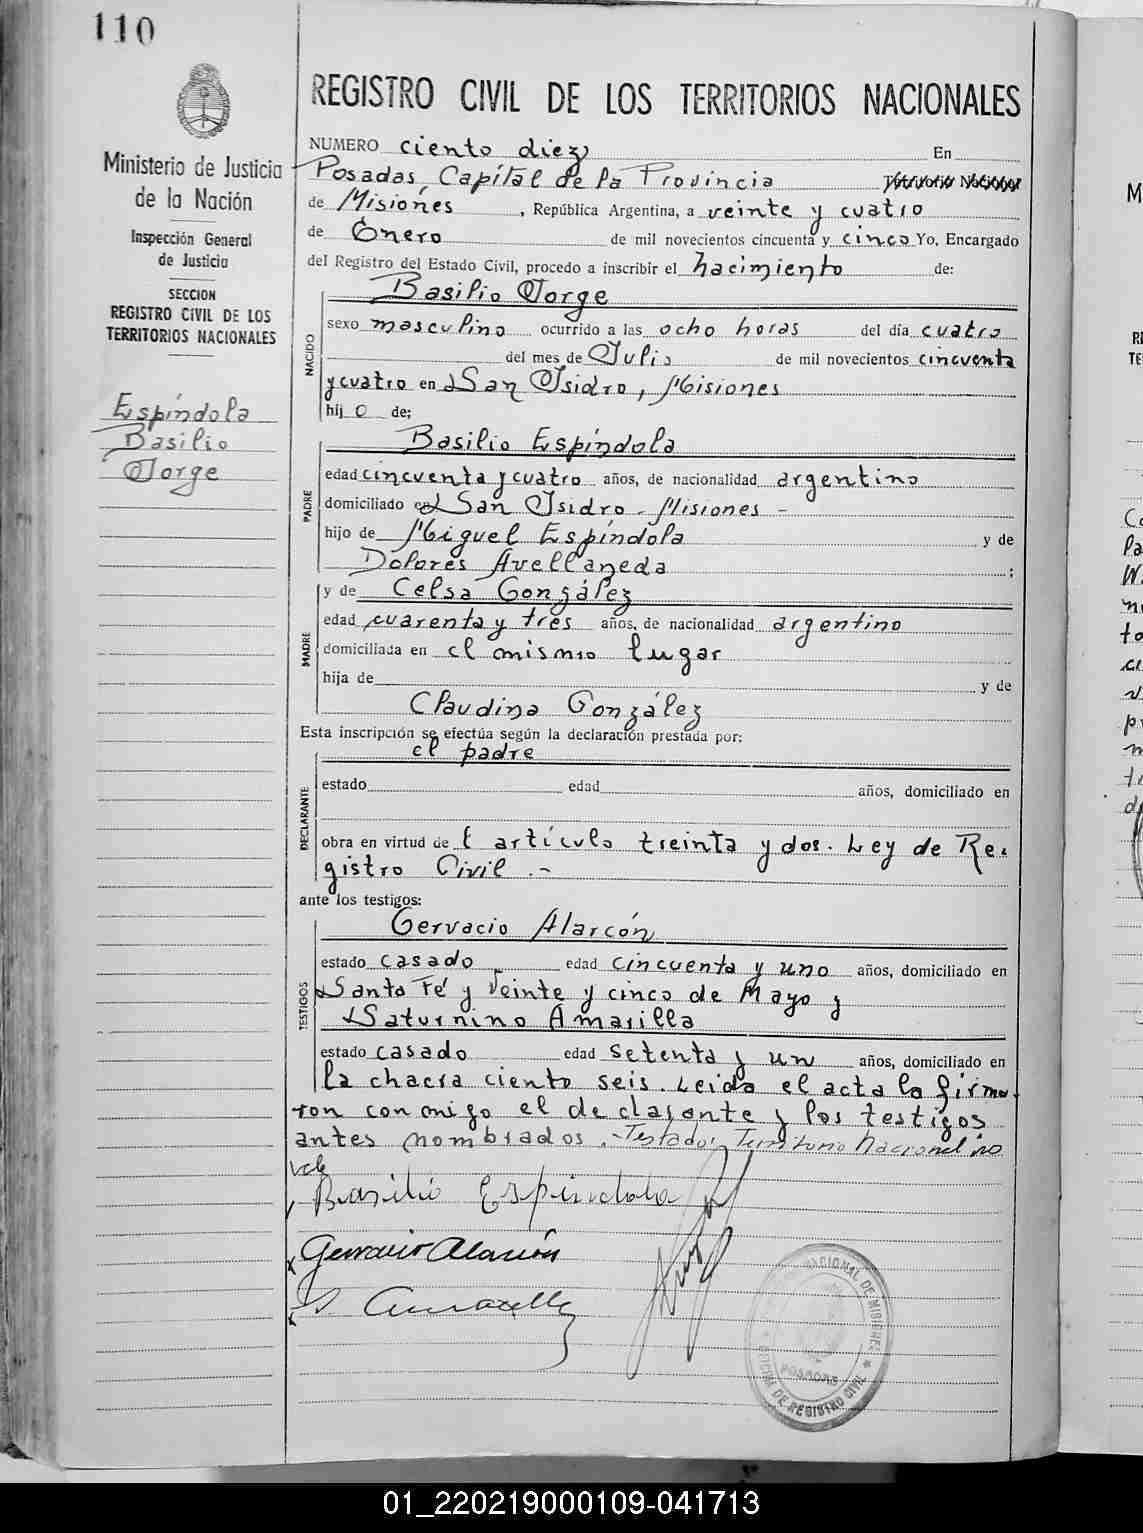 110
Ministerio de Justicia
de la Nación
Inspección General
de Justicia
SECCION
REGISTRO CIVIL DE LOS
TERRITORIOS NACIONALES
Espíndola
Basilio
Jorge
REGISTRO CIVIL DE LOS TERRITORIOS NACIONALES
NUMERO ciento diez En
Posadas, Capital de la Provincia Territorio Nacional
de Misiones, República Argentina, a veinte y cuatro
de Enero de mil novecientos cincuenta y cinco Yo, Encargado
del Registro del Estado Civil, procedo a inscribir el nacimiento de:
NACIDO
Basilio Jorge
sexo masculino ocurrido a las ocho horas del día cuatro
del mes de Julio de mil novecientos cincuenta
y cuatro en San Isidro, Misiones
hijo de;
PADRE
Basilio Espíndola
edad cincuenta y cuatro años, de nacionalidad argentino
domiciliado en San Isidro - Misiones -
hijo de Miguel Espíndola y de
Dolores Avellaneda ;
MADRE
y de Celsa González
edad cuarenta y tres años, de nacionalidad argentino
domiciliada en el mismo lugar
hija de y de
Claudina González
Esta inscripción se efectúa según la declaración prestada por:
DECLARANTE
el padre
estado edad años, domiciliado en
obra en virtud de l artículo treinta y dos. Ley de Re-
gistro Civil.-
ante los testigos:
TESTIGOS
Gervacio Alarcón
estado casado edad cincuenta y uno años, domiciliado en
Santa Fé y Veinte y cinco de Mayo y
Saturnino Amarilla
estado casado edad setenta y un años, domiciliado en
la chacra ciento seis. Leida el acta la firma-
ron conmigo el declarante y los testigos
antes nombrados.- Testado: Territorio Nacional no
vale
Basilio Espindola
Gervacio Alarcón
S Amarilla
NACIONAL DE MISIONES
POSADAS
OFICINA DE REGISTRO CIVIL
M
RE
TE
01_220219000109-041713